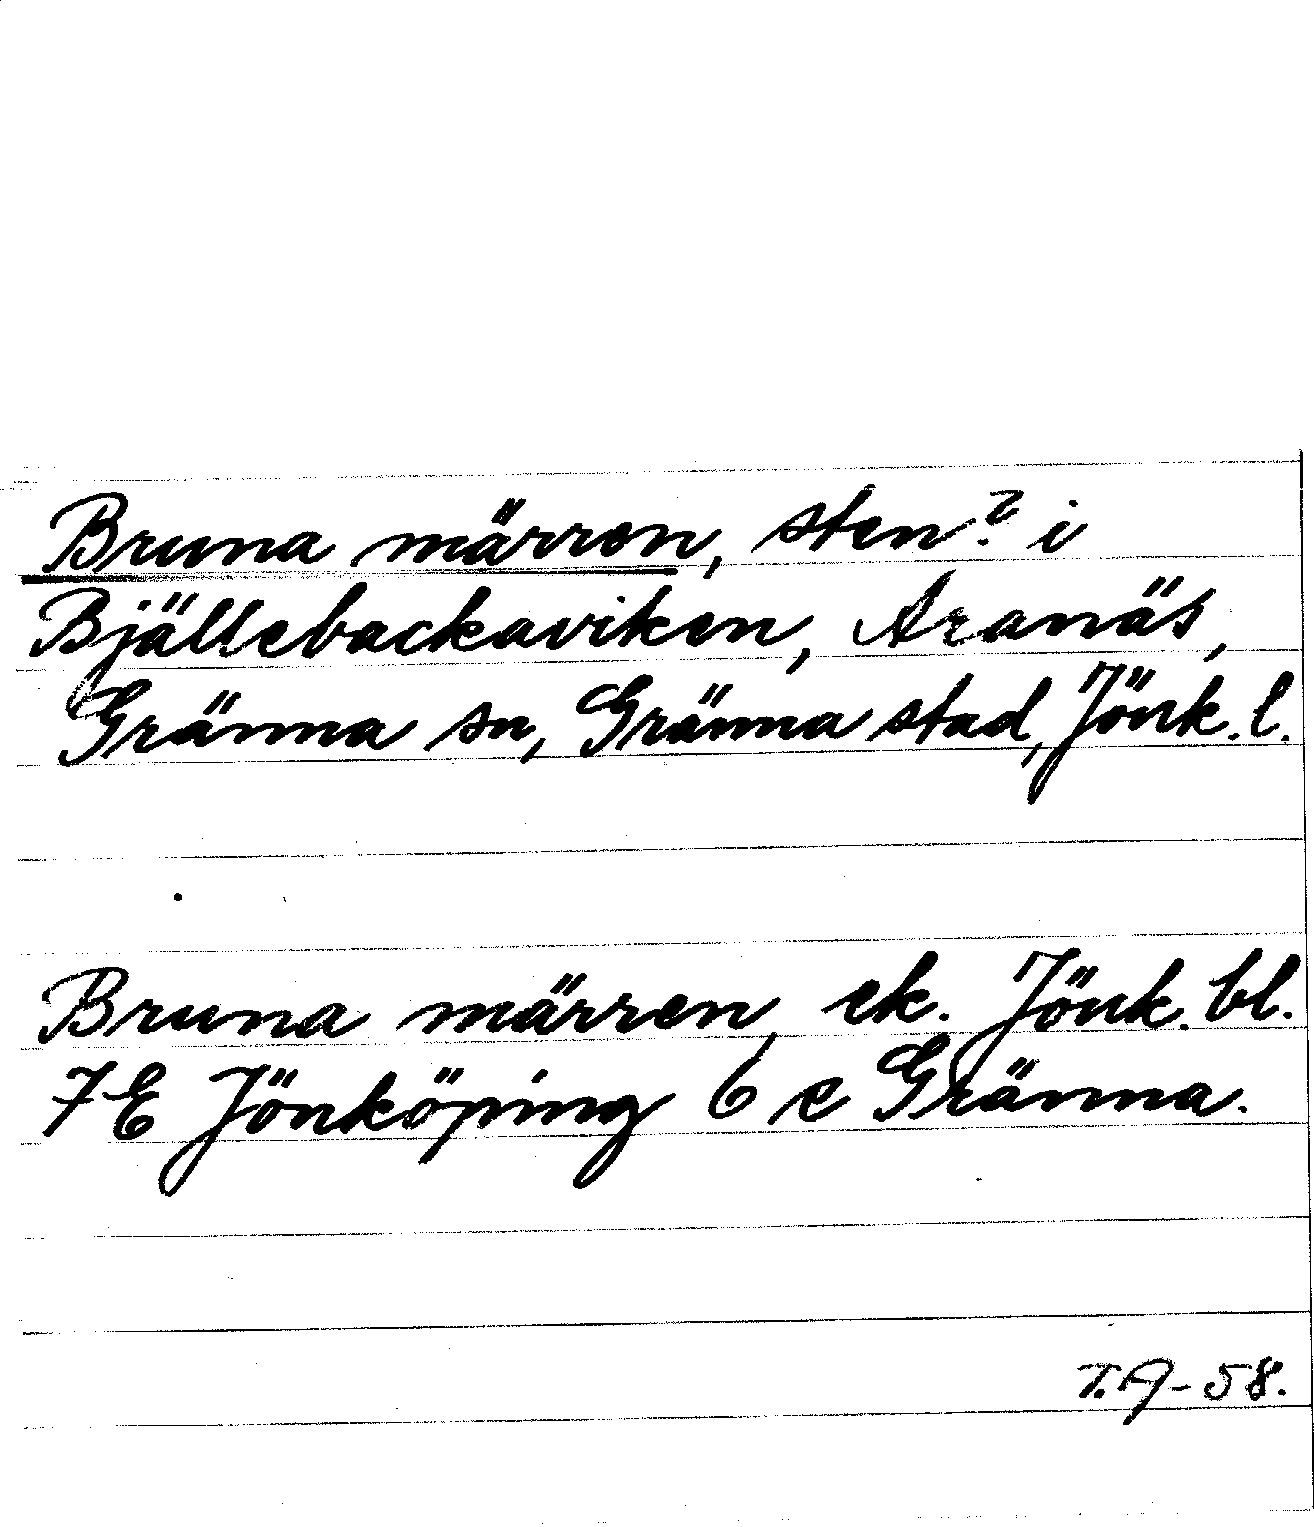 Bruna märren, sten? i
Bjällebackaviken, Aranäs,
Gränna sn, Gränna stad, Jönk. l.
Bruna märren, ek. Jönk. bl.
7E Jönköping 6 e Gränna.
T.A-58.